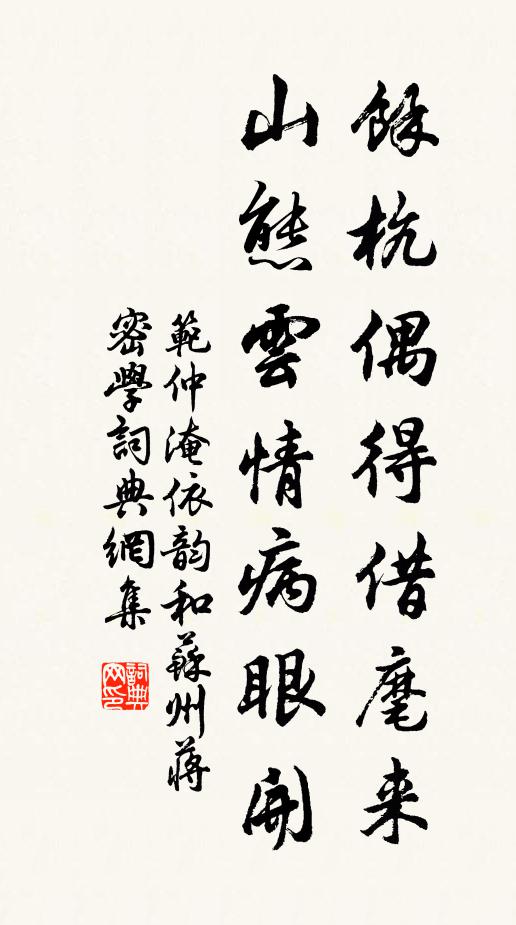 餘杭偶得借麾来
山態雲情病眼開
範仲淹依韵和蘇州蔣
密學詞典網集
詞典网印